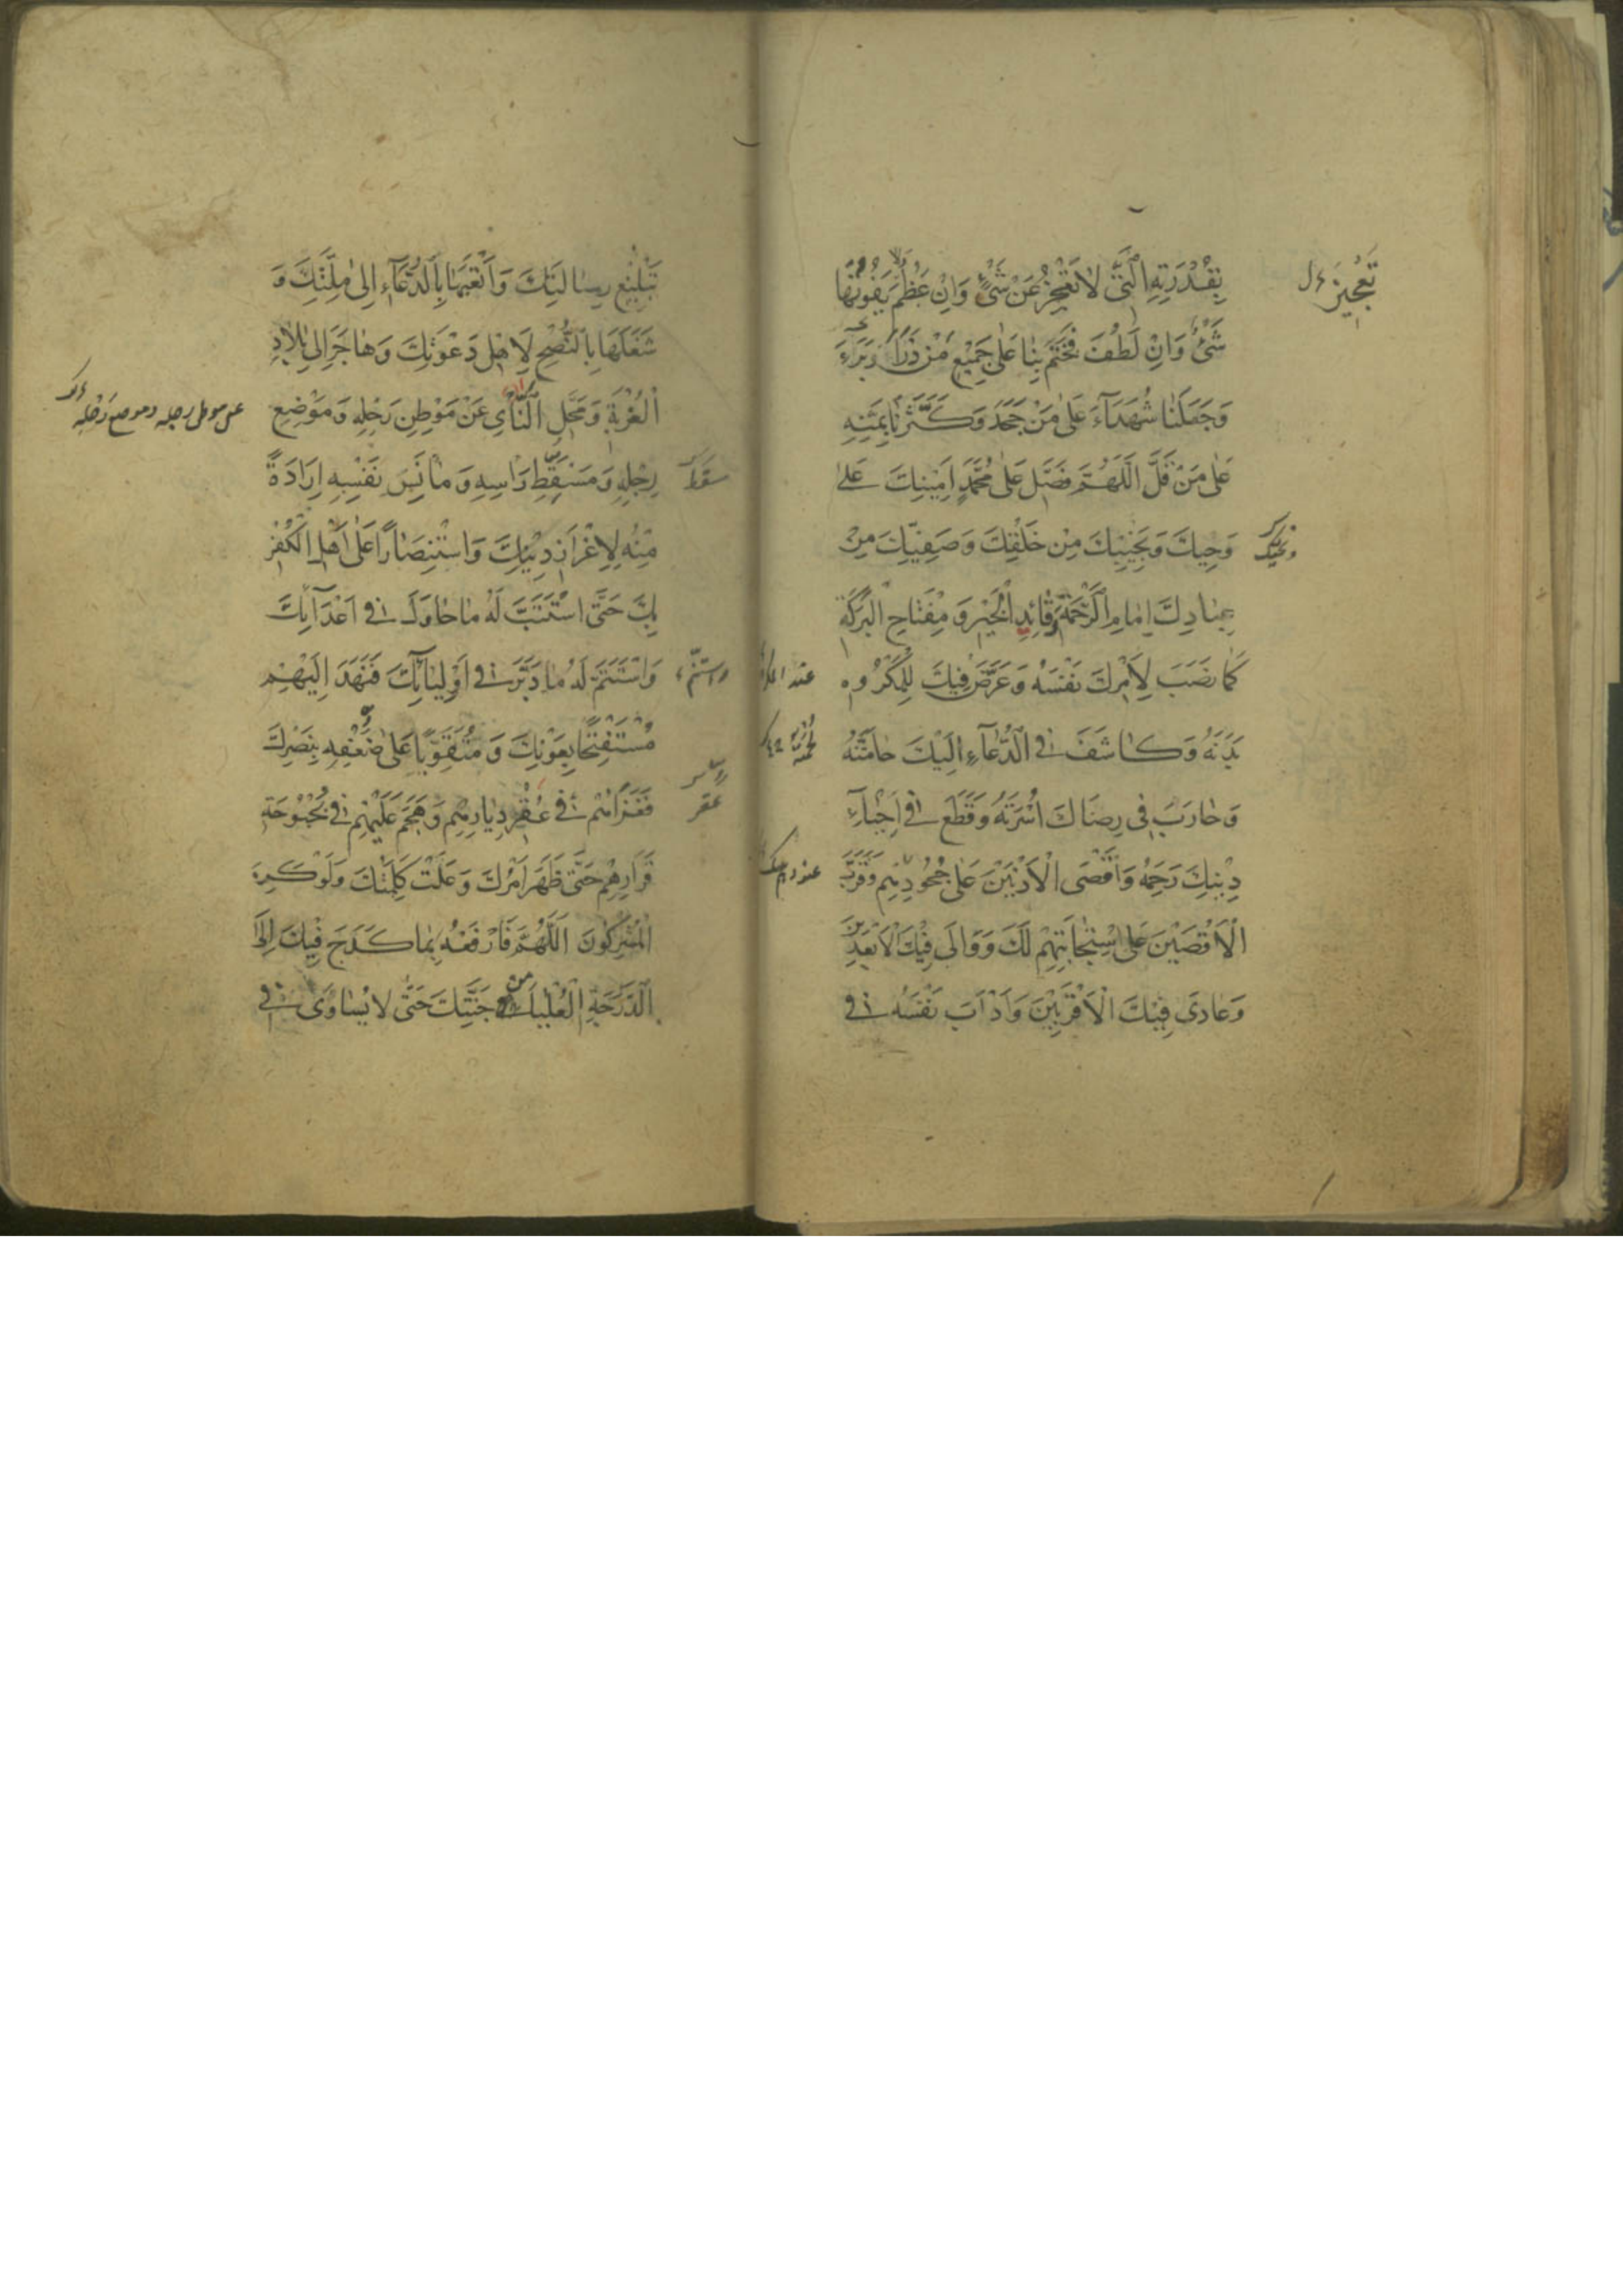 بِقُدْرَتِهِ الَّتي لاٰ تَعْجِزُ عَنْ شَيْءٍ وَاِنْ عَظُمَ وَلاٰ يَفُوتُهٰا
شَيْءٌ وَاِنْ لَطُفَ فَخَتَمَ بِنٰا عَلىٰ جَميْعِ مَنْ ذَرَأَ
وَجَعَلَنٰا شُهَدَآءَ عَلىٰ مَنْ جَحَدَ وَكَثَّرَنٰا بِمَنِّهِ
عَلىٰ مَنْ قَلَّ اَللّٰهُمَّ فَصَلِّ عَلىٰ مُحَمَّدٍ اَمِيْنِكَ عَلىٰ
وَحْيِكَ وَنَجِيْبِكَ مِنْ خَلْقِكَ وَصَفِيِّكَ مِنْ
عِبٰادِكَ اِمٰامِ الرَّحْمَةِ وَقٰائِدِ الْخَيْرِ وَمِفْتٰاحِ الْبَرَكَةِ
كَمٰا نَصَبَ لِاَمْرِكَ نَفْسَهُ وَعَرَّضَ فِيكَ لِلْمَكْرُوهِ
بَدَنَهُ وَكٰاشَفَ فِي الدُّعٰآءِ اِلَيْكَ حٰامَّتَهُ
وَحٰارَبَ فِي رِضٰاكَ اُسْرَتَهُ وَقَطَعَ فِي اِحْيٰآءِ
دِيْنِكَ رَحِمَهُ وَاَقْصَى الْاَدْنَيْنَ عَلىٰ جُحُودِهِمْ وَقَرَّبَ
الْاَقْصَيْنَ عَلَى اسْتِجٰابَتِهِمْ لَكَ وَوٰالىٰ فِيْكَ الْاَبْعَدِيْنَ
وَعٰادىٰ فِيْكَ الْاَقْرَبِيْنَ وَاَدْاَبَ نَفْسَهُ فِي
تَعْجِيزُ
تَبْلِيْغِ رِسٰالَتِكَ وَاَتْعَبَهٰا بِالدُّعٰآءِ اِلىٰ مِلَّتِكَ وَ
شَغَلَهٰا بِالنُّصْحِ لِاَهْلِ دَعْوَتِكَ وَهٰاجَرَ اِلىٰ بِلاٰدِ
الْغُرْبَةِ وَمَحَلِّ النَّأْيِ عَنْ مَوْطِنِ رَحْلِهِ وَمَوْضِعِ
رِجْلِهِ وَمَسْقَطِ رَأْسِهِ وَمَأْنَسِ نَفْسِهِ اِرَادَةً
مِنْهُ لِاِعْزَازِ دِيْنِكَ وَاسْتِنْصٰارًا عَلىٰ اَهْلِ الْكُفْرِ
بِكَ حَتَّى اسْتَتَبَّ لَهُ مٰا حٰاوَلَ فِي اَعْدَآئِكَ
وَاسْتَتَمَّ لَهُ مٰا دَبَّرَ فِي اَوْلِيٰآئِكَ فَنَهَدَ اِلَيْهِمْ
مُسْتَفْتِحًا بِعَوْنِكَ وَمُتَقَوِّيًا عَلىٰ ضَعْفِهِ بِنَصْرِكَ
فَغَزَاهُمْ فِي عُقْرِ دِيٰارِهِمْ وَهَجَمَ عَلَيْهِمْ فِي بُحْبُوحَةِ
قَرٰارِهِمْ حَتّٰى ظَهَرَ اَمْرُكَ وَعَلَتْ كَلِمَتُكَ وَلَوْ كَرِهَ
الْمُشْرِكُونَ اَللّٰهُمَّ فَارْفَعْهُ بِمٰا كَدَحَ فِيكَ اِلَى
الدَّرَجَةِ الْعُلْيٰا مِنْ جَنَّتِكَ حَتّٰى لاٰ يُسٰاوىٰ فِي
عن موطن رجله وموضع رَحْلِهِ
عقر